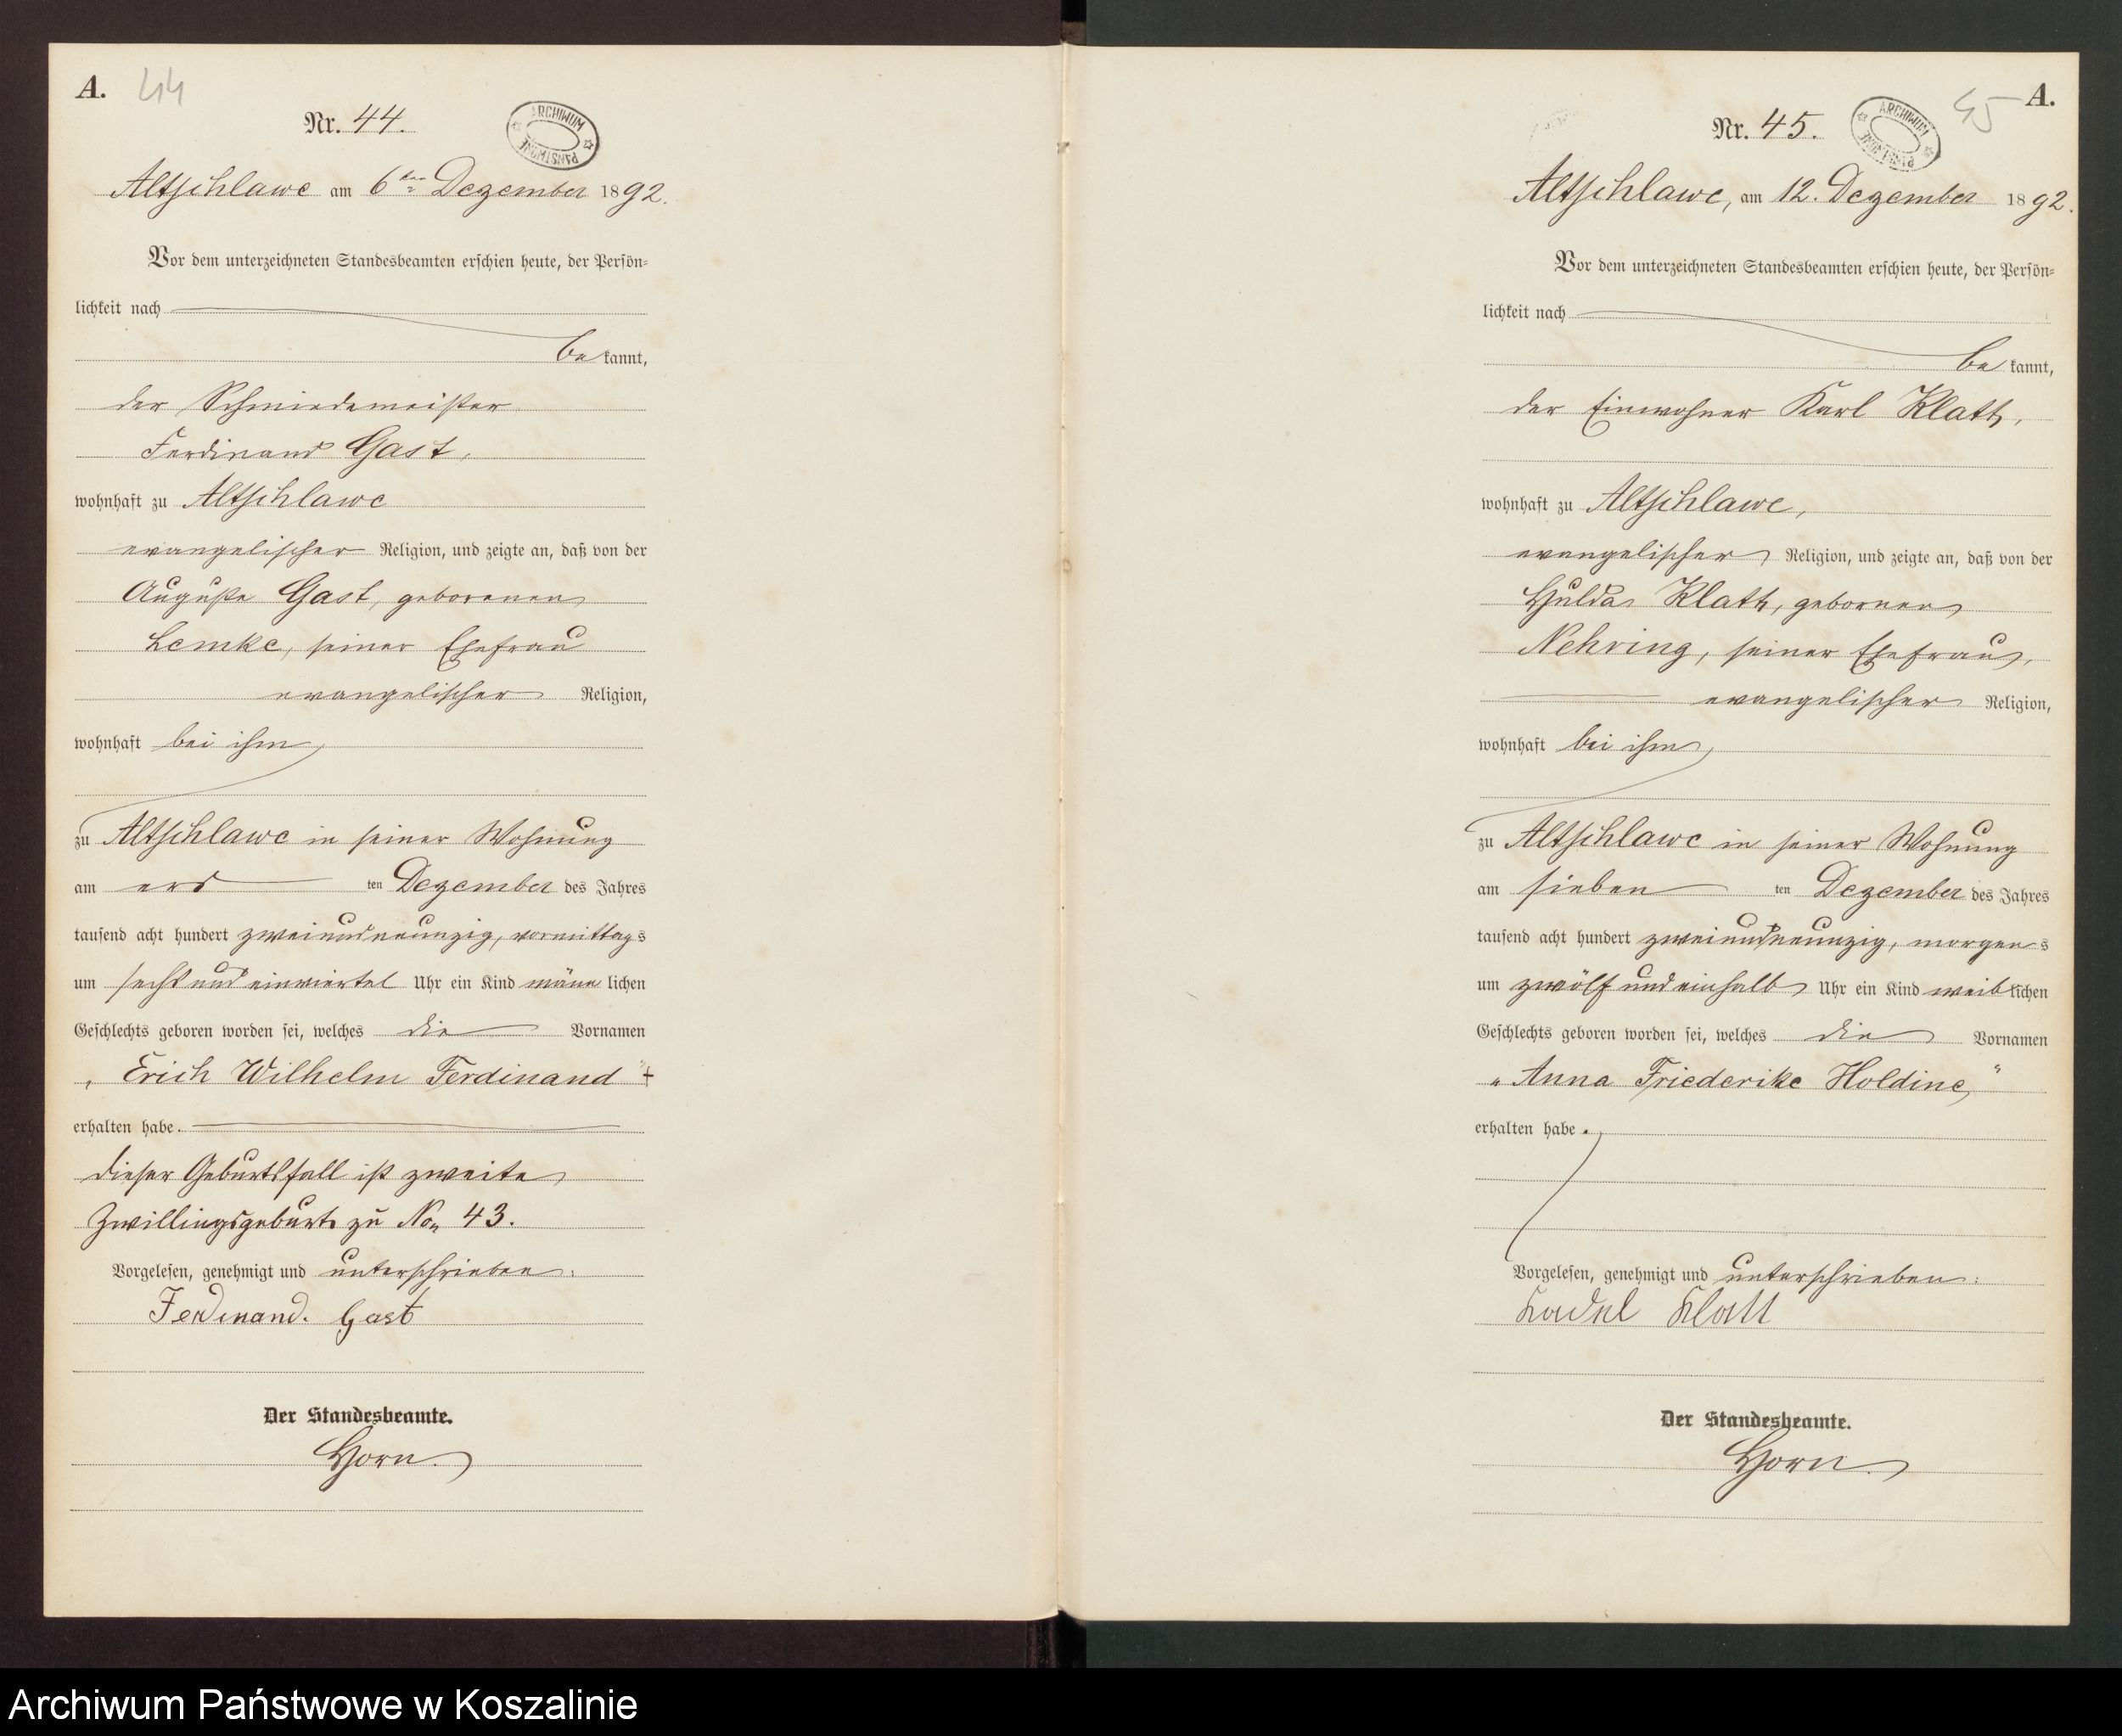 A. 44
Nr. 44.
ARCHIWUM PAŃSTWOWE
Altschlawe am 6ten Dezember 1892.
Vor dem unterzeichneten Standesbeamten erschien heute, der Persön=
lichkeit nach
be kannt,
der Schmiedemeister
Ferdinand Gast,
wohnhaft zu Altschlawe
evangelischer Religion, und zeigte an, daß von der
Auguste Gast, geborenen
Lemke, seiner Ehefrau
evangelischer Religion,
wohnhaft bei ihm,
zu Altschlawe in seiner Wohnung
am ers ten Dezember des Jahres
tausend acht hundert zweiundneunzig, vormittags
um sechs und einviertel Uhr ein Kind männ lichen
Geschlechts geboren worden sei, welches die Vornamen
„Erich Wilhelm Ferdinand“
erhalten habe.
Dieser Geburtsfall ist zweite
Zwillingsgeburt zu No. 43.
Vorgelesen, genehmigt und unterschrieben:
Ferdinand. Gast
Der Standesbeamte.
Horn.
45 A.
Nr. 45.
ARCHIWUM PAŃSTWOWE
Altschlawe, am 12. Dezember 1892.
Vor dem unterzeichneten Standesbeamten erschien heute, der Persön=
lichkeit nach
be kannt,
der Einwohner Karl Klatt,
wohnhaft zu Altschlawe,
evangelischer Religion, und zeigte an, daß von der
Hulda Klatt, gebornen
Nehring, seiner Ehefrau,
evangelischer Religion,
wohnhaft bei ihm,
zu Altschlawe in seiner Wohnung
am sieben ten Dezember des Jahres
tausend acht hundert zweiundneunzig, morgens
um zwölf und einhalb Uhr ein Kind weiblichen
Geschlechts geboren worden sei, welches die Vornamen
„Anna Friederike Holdine“
erhalten habe.
Vorgelesen, genehmigt und unterschrieben:
Klatt
Der Standesbeamte.
Horn.
Archiwum Państwowe w Koszalinie